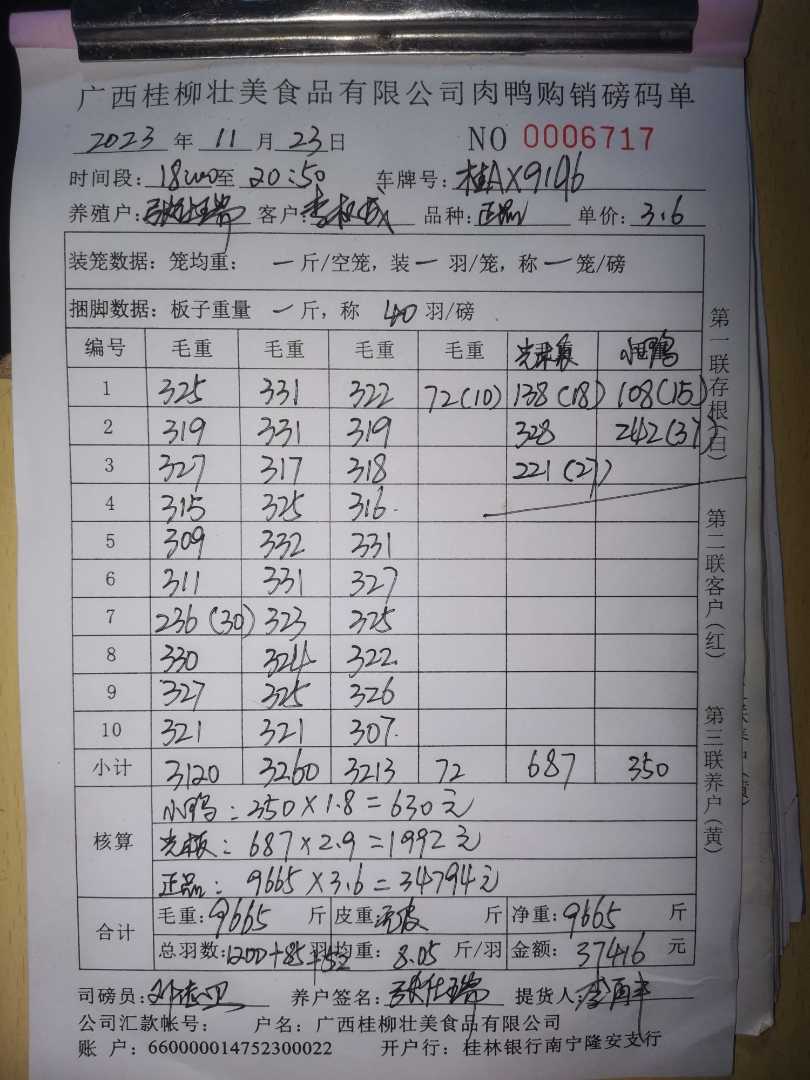 广西桂柳壮美食品有限公司肉鸭购销磅码单
2023 年 11 月 23 日 NO 0006717
时间段: 18:00 至 20:50 车牌号: 桂AX9196
养殖户: 客户: 品种: 正品 单价: 3.6
装笼数据: 笼均重: 一 斤/空笼, 装 一 羽/笼, 称 一 笼/磅
捆脚数据: 板子重量 一 斤, 称 40 羽/磅
编号 毛重 毛重 毛重 毛重 光板 小鸭
1 325 331 322 72(10) 138(18) 108(15)
2 319 331 319 328 242(37)
3 327 317 318 221(27)
4 315 325 316
5 309 332 331
6 311 331 327
7 236(30) 323 325
8 330 324 322
9 327 325 326
10 321 321 307
小计 3120 3260 3213 72 687 350
核算
小鸭: 350×1.8=630元
光板: 687×2.9=1992元
正品: 9665×3.6=34794元
合计
毛重: 9665 斤 皮重: 斤 净重: 9665 斤
总羽数: 1200+85+52 羽 均重: 8.05 斤/羽 金额: 37416 元
司磅员: 养户签名: 提货人:
公司汇款帐号: 户名: 广西桂柳壮美食品有限公司
账 户: 660000014752300022 开户行: 桂林银行南宁隆安支行
第一联存根(白)
第二联客户(红)
第三联养户(黄)